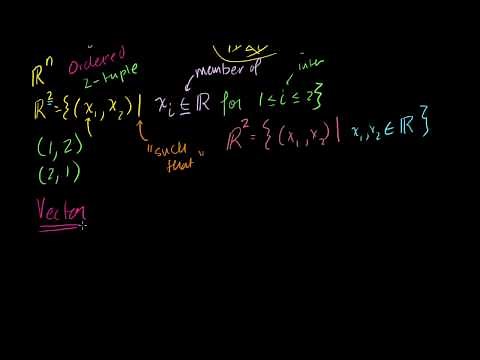 ℝⁿ
Ordered
2-tuple
member of
inter
ℝ² = {(x₁, x₂) | xᵢ ∈ ℝ for 1 ≤ i ≤ 2}
(1, 2)
(2, 1)
"such that"
ℝ² = {(x₁, x₂) | x₁, x₂ ∈ ℝ}
Vector